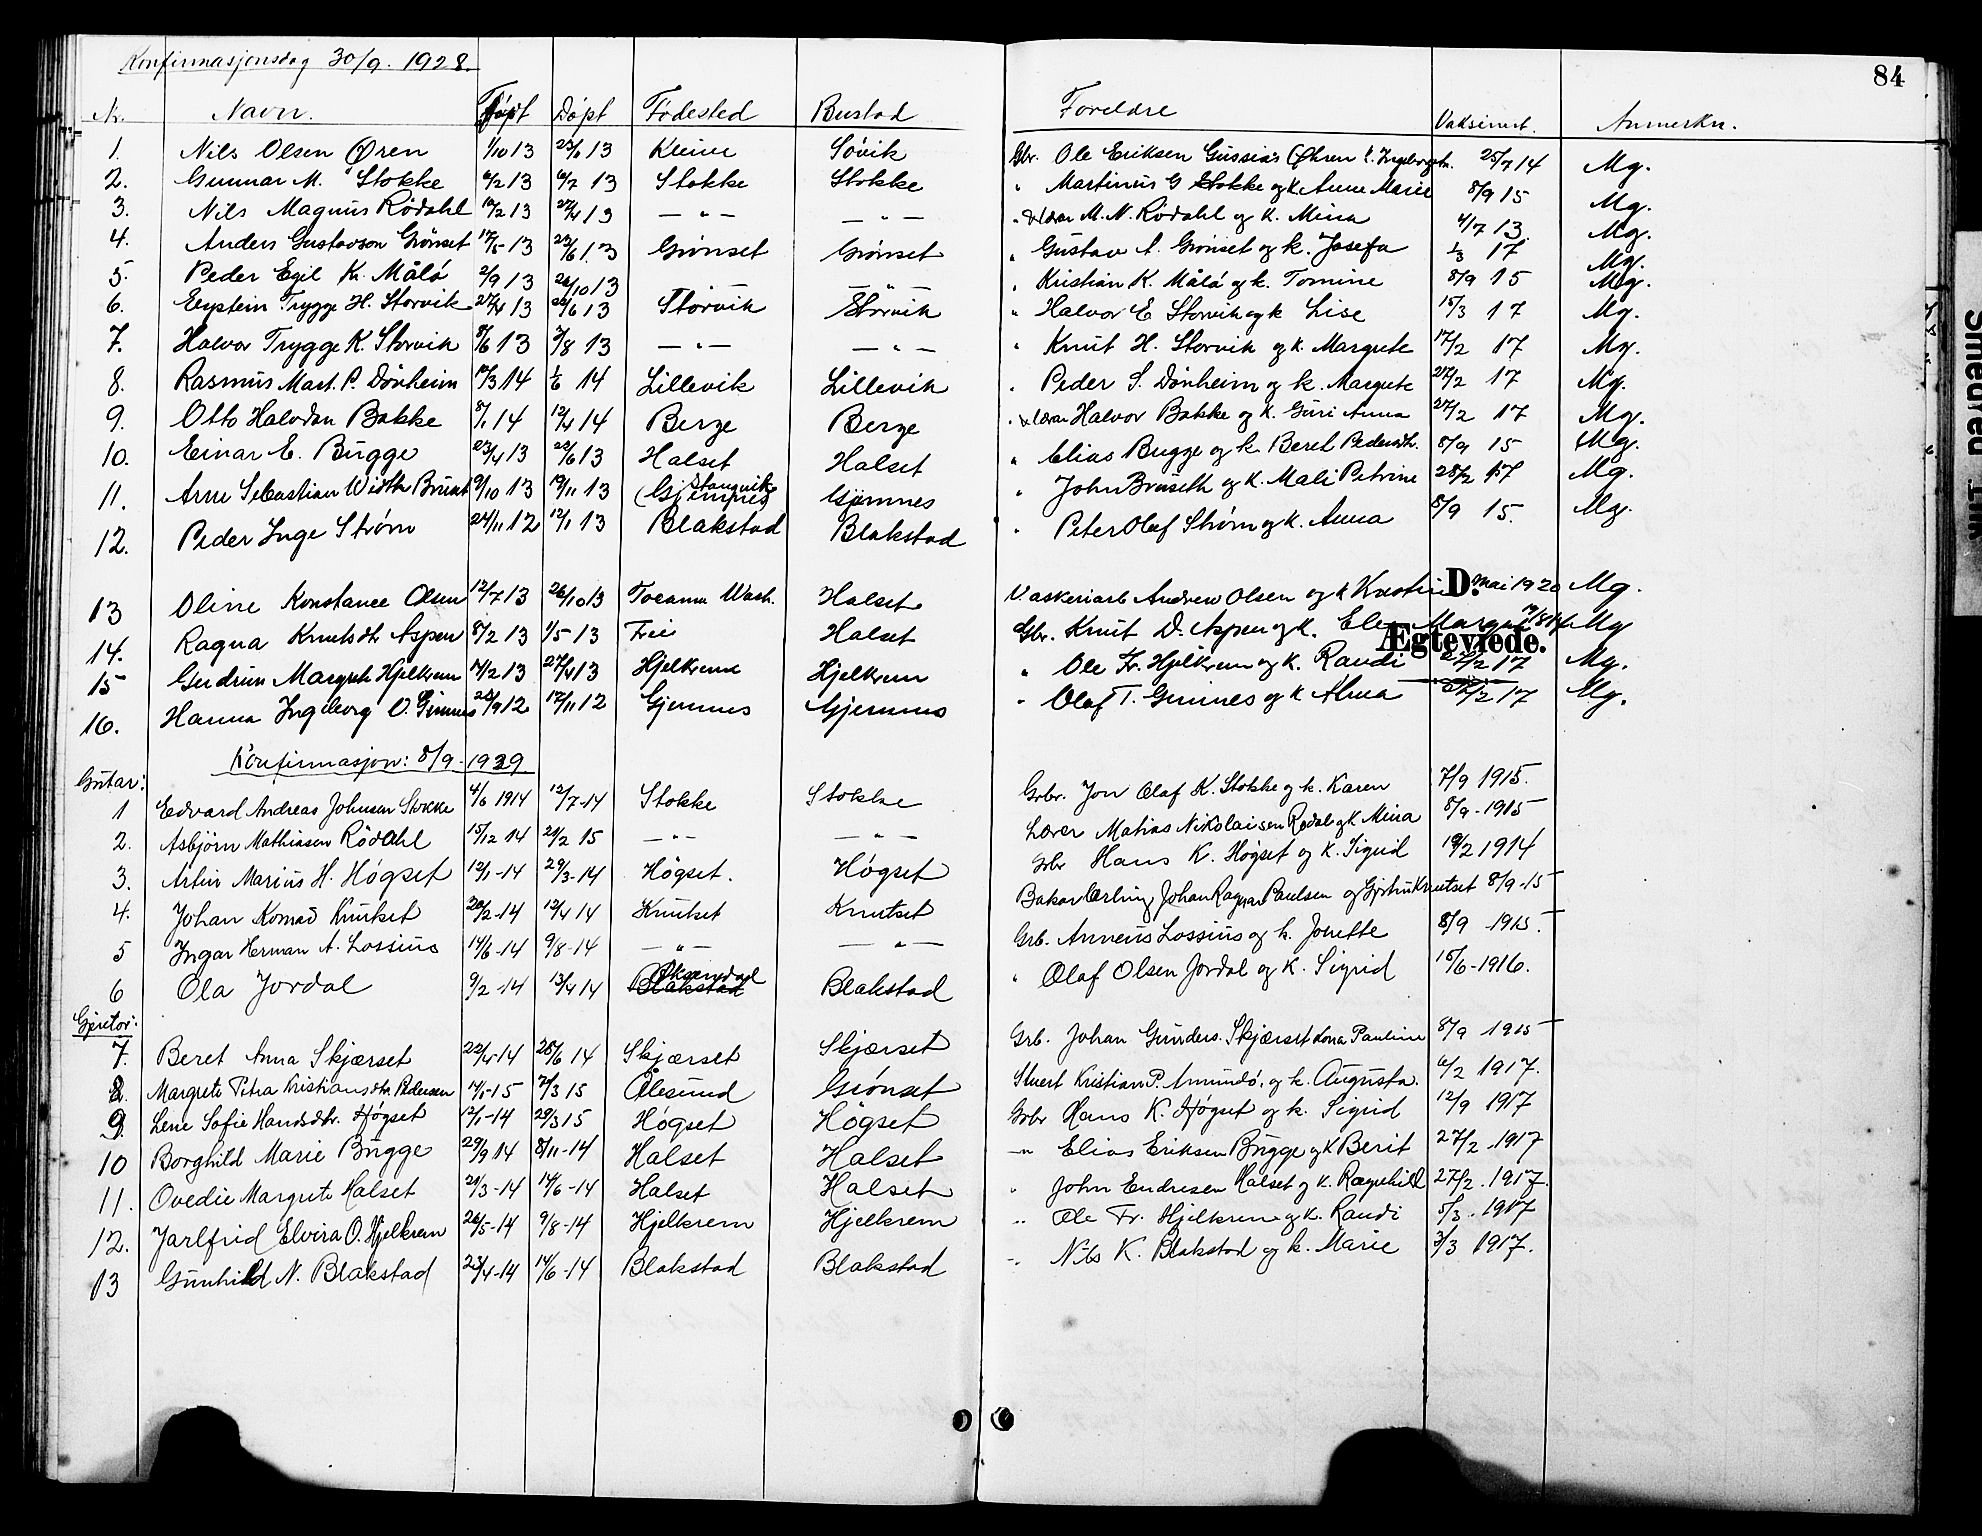 84
Konfirmasjonsdag 30/9. 1928.
Nr. Navn. Født Døpt Fødested Bustad Foreldre Vaksinert. Anmerkn.
1. Nils Olsen Øren 1/10 13 13 Søvik Gbr. Ole Eriksen Gussiås (Øhren) 25/7 14 Mg.
2. Gunnar M. Stokke 6/2 13 13 Stokke Stokke " Martinus G Stokke og k. Anne Marie 8/9 15 Mg.
3. Nils Magnus Rødahl 13 27/4 13 — " — — " — " Lærar M. N. Rødahl og k. Mina 4/7 13 Mg.
4. Anders Gustavson Grønset 17/5 13 22/6 13 Grønset Grønset " Gustav A. Grønset og k. Josefa 1/3 17 Mg.
5. Peder Egil Kr. Målø 2/9 13 26/10 13 — " — — " — " Kristian K. Målø og k. Tomine 8/9 15 Mg.
6. Eystein Trygge H. Storvik 27/4 13 22/6 13 Storvik Storvik " Halvor E Storvik og k Lise 15/3 17 Mg.
7. Halvor Trygge K. Storvik 8/6 13 3/8 13 — " — — " — " Knut H. Storvik og k. Margrete 17/2 17 Mg.
8. Rasmus Mart. P. Dönheim 14 1/6 14 Lillevik Lillevik " Peder S. Dönheim og k. Margrete 27/2 17 Mg.
9. Otto Halvdan Bakke 8/1 14 12/4 14 Berge Berge " Lærar Halvor Bakke og k. Guri Anna 27/2 17 Mg.
10. Einar E. Bugge 23/4 13 22/6 13 Halset Halset " Elias Bugge og k. Beret Pedersdtr. 8/9 15 Mg.
11. Arne Sebastian Width 9/10 13 19/11 13 (Gjemnes) Stangvik Gjemnes " John Bruseth og k. Mali Petrine 28/2 17 Mg.
12. Peder Inge Strøm 24/11 12 12/1 13 Blakstad Blakstad " Peter Olaf Strøm og k. Anna 8/9 15. Mg.
D.
13 Oline Konstance Olsen 12/7 13 26/10 13 Tocama Wash. Halset Vaskeriarb Andrew Olsen og k Kristine mai 1920 Mg.
14. Ragna Knutsdtr Aspen 8/2 13 1/5 13 Frei Halset Gbr. Knut D. Aspen og k. Elen Mg
Ægteviede.
15 Gudrun Margrete Hjelkrem 14/2 13 27/4 13 Hjelkrem Hjelkrem " Ole Fr. Hjelkrem og k. Randi 27/2 17 Mg.
16. Hanna Ingeborg O. Gimnes 22/9 12 17/11 12 Gjemnes Gjemnes " Olaf T. Gimnes og k Alma 27/2 17 Mg.
Konfirmasjon: 8/9 - 1929
Gutar:
1 Edvard Andreas Johnsen Stokke 4/6 1914 12/7 - 14 Stokke Stokke Grbr. Jon Olaf K. Stokke og k. Karen 7/9 1915.
2. Asbjörn Mathiasen Rödahl 15/12 14 21/2 15 — " — — " — Lærer Matias Nikolaisen Rødal og k Mina 8/9 - 1915
3. Artur Marius H. Högset 12/1 - 14 29/3 - 14 Högset. Högset Grbr Hans K. Högset og k. Sigrid 19/2 1914
4. Johan Konrad Knutset 20/2 - 14 12/4 14 Knutset Knutset Bakarlærling Johan Ragnar Paulsen og Gjertru Knutset 8/9 - 15
5 Ingar Herman A. Lossius 14/6 - 14 9/8 - 14 — " — — " — Grb. Anneus Lossius og k. Jonette 8/9 - 1915.
6 Ola Jordal 9/2 - 14 13/4 14 Blakstad Øksendal Blakstad " Olaf Olsen Jordal og k. Sigrid 15/6 - 1916.
Gjentor:
7. Beret Anna Skjærset 22/4 - 14 28/6 14 Skjærset Skjærset Grb. Johan Gunders. Skjærset kona Pauline 8/9 1915
8. Margrete Petra Kristiansdtr. Pedersen 14/1 - 15 7/3 15 Ålesund Grønset Stuert Kristian P. Amundö. og k. Augusta. 6/2 1917.
9. Lene Sofie Hansdtr. Högset 12/1 - 14 29/3 15 Högset Högset Grbr Hans K. Högset og k. Sigrid 12/9 1917
10 Borghild Marie Bugge 29/9 14 8/11 - 14 Halset Halset — " Elias Eriksen Bugge og k Berit 27/2 . 1917
11. Ovedie Margrete Halset 21/3 - 14 14/6 - 14 Halset Halset " John Endresen Halset og k. Ragnhild 27/2 . 1917.
12. Jarlfrid Elvira O. Hjelkrem 26/5 - 14 9/8 - 14 Hjelkrem Hjelkrem " Ole Fr. Hjelkrem og k. Randi 5/3 . 1917
13 Gunhild N. Blakstad 23/4 - 14 14/6 - 14 Blakstad Blakstad " Nils K. Blakstad og k. Marie 3/3 1917.